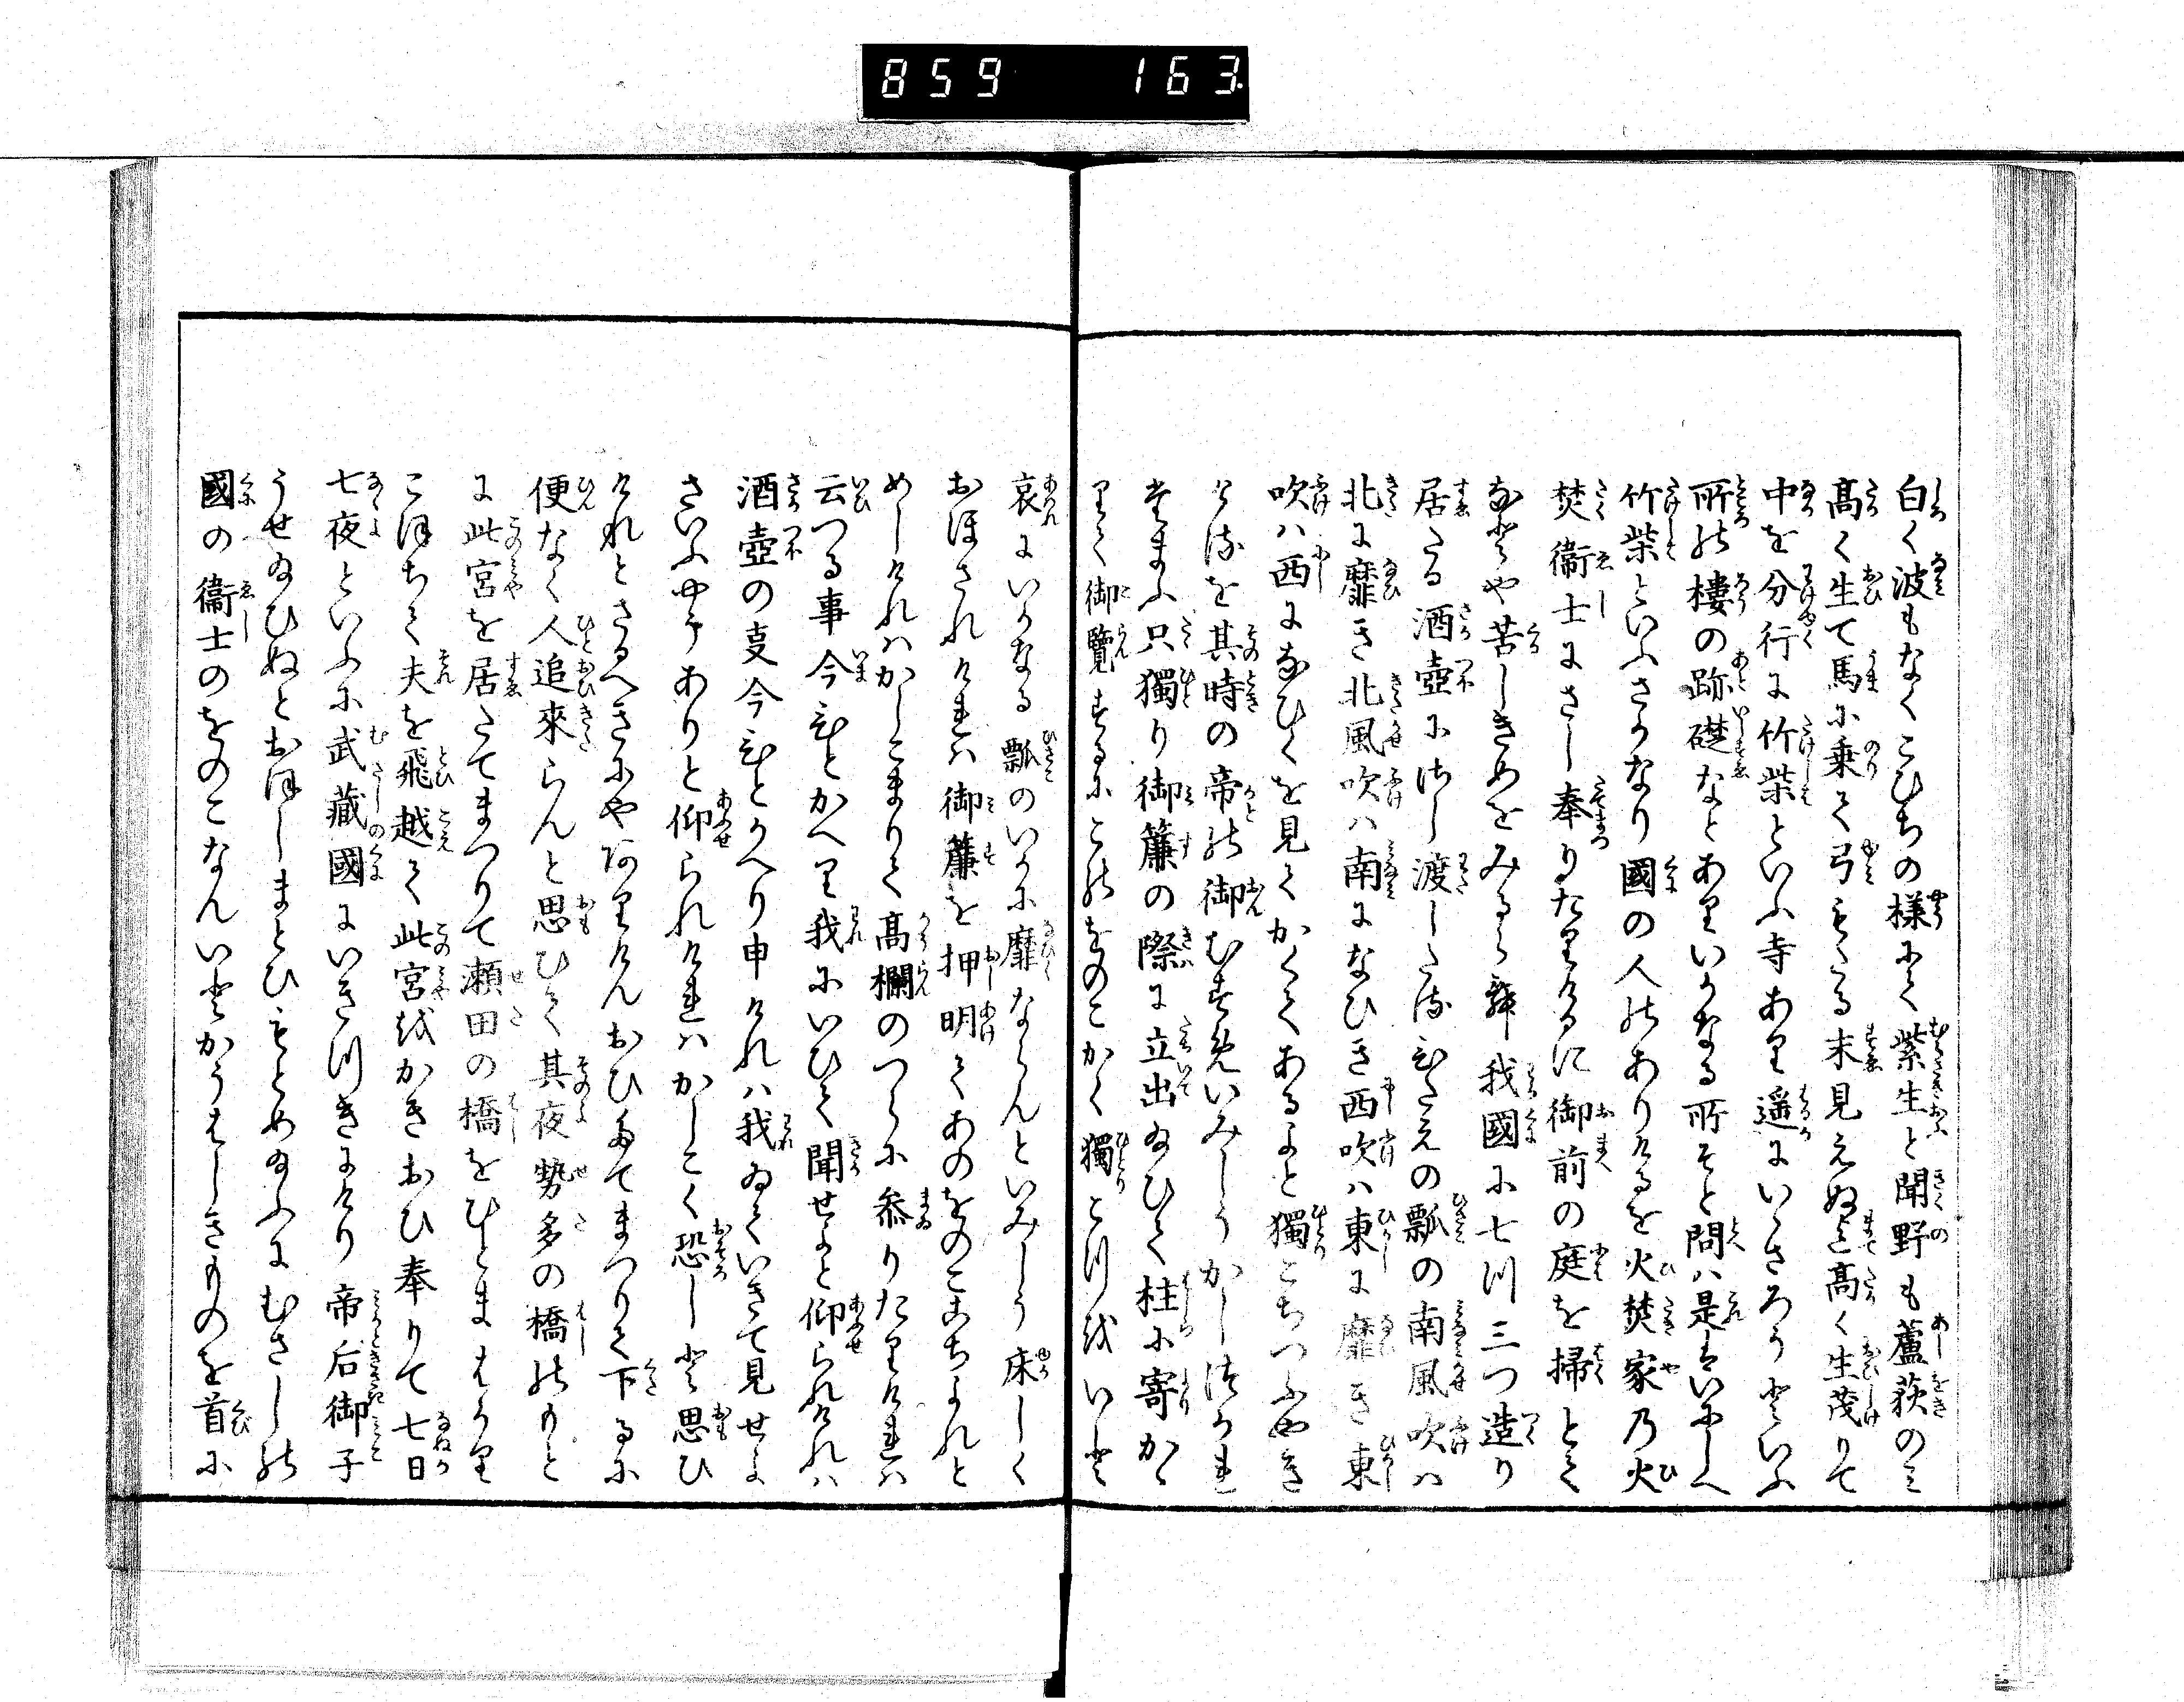 859 163
白く波もなくこひちの様にて紫生と聞野も蘆荻のミ
高く生て馬に乗て弓もたる末見えぬまて高く生茂りて
中を分行に竹柴といふ寺あり遥にいゝさろうといふ
所の楼の跡礎なとありいかなる所そと問ハ是はいにしへ
竹柴といふさかなり國の人のありけるを火焚家乃火
焚衞士にさし奉りたりけるに御前の庭を掃とて
なとや苦しきめをみるらん我國に七つ三つ造り
居たる酒壺にさし渡したるひたえの瓢の南風吹ハ
北に靡き北風吹ハ南になひき西吹ハ東に靡き東
吹ハ西になひくを見てかくてあるよと獨こちつふやき
けるを其時の帝の御むすめいみしうかしつかれ
たまふ只獨り御簾の際に立出給ひて柱に寄かゝ
りて御覽するにこのをのこかく獨こつをいと
哀にいかなる瓢のいかに靡ならんといみしう床しく
おほされけれハ御簾を押明てあのをのここちよれと
めしけれハかしこまりて高欄のつらに参りたりけれハ
云つる事今ひとかへり我にいひて聞せよと仰られけれハ
酒壺の叓今ひとかへり申けれハ我ゐていきて見せよ
さいふやうありと仰られけれハかしこく恐しと思ひ
けれとさるへきにや有りけんおひたてまつりて下るに
便なく人追來らんと思ひて其夜勢多の橋のもと
に此宮を居たてまつりて瀬田の橋をひとまはかり
こほちて夫を飛越て此宮をかきおひ奉りて七日
七夜といふに武藏國にいきつきにけり帝后御子
うせ給ひぬとおほしまとひもとめ給ふにむさしの
國の衞士のをのこなんいとかうはしきものを首に